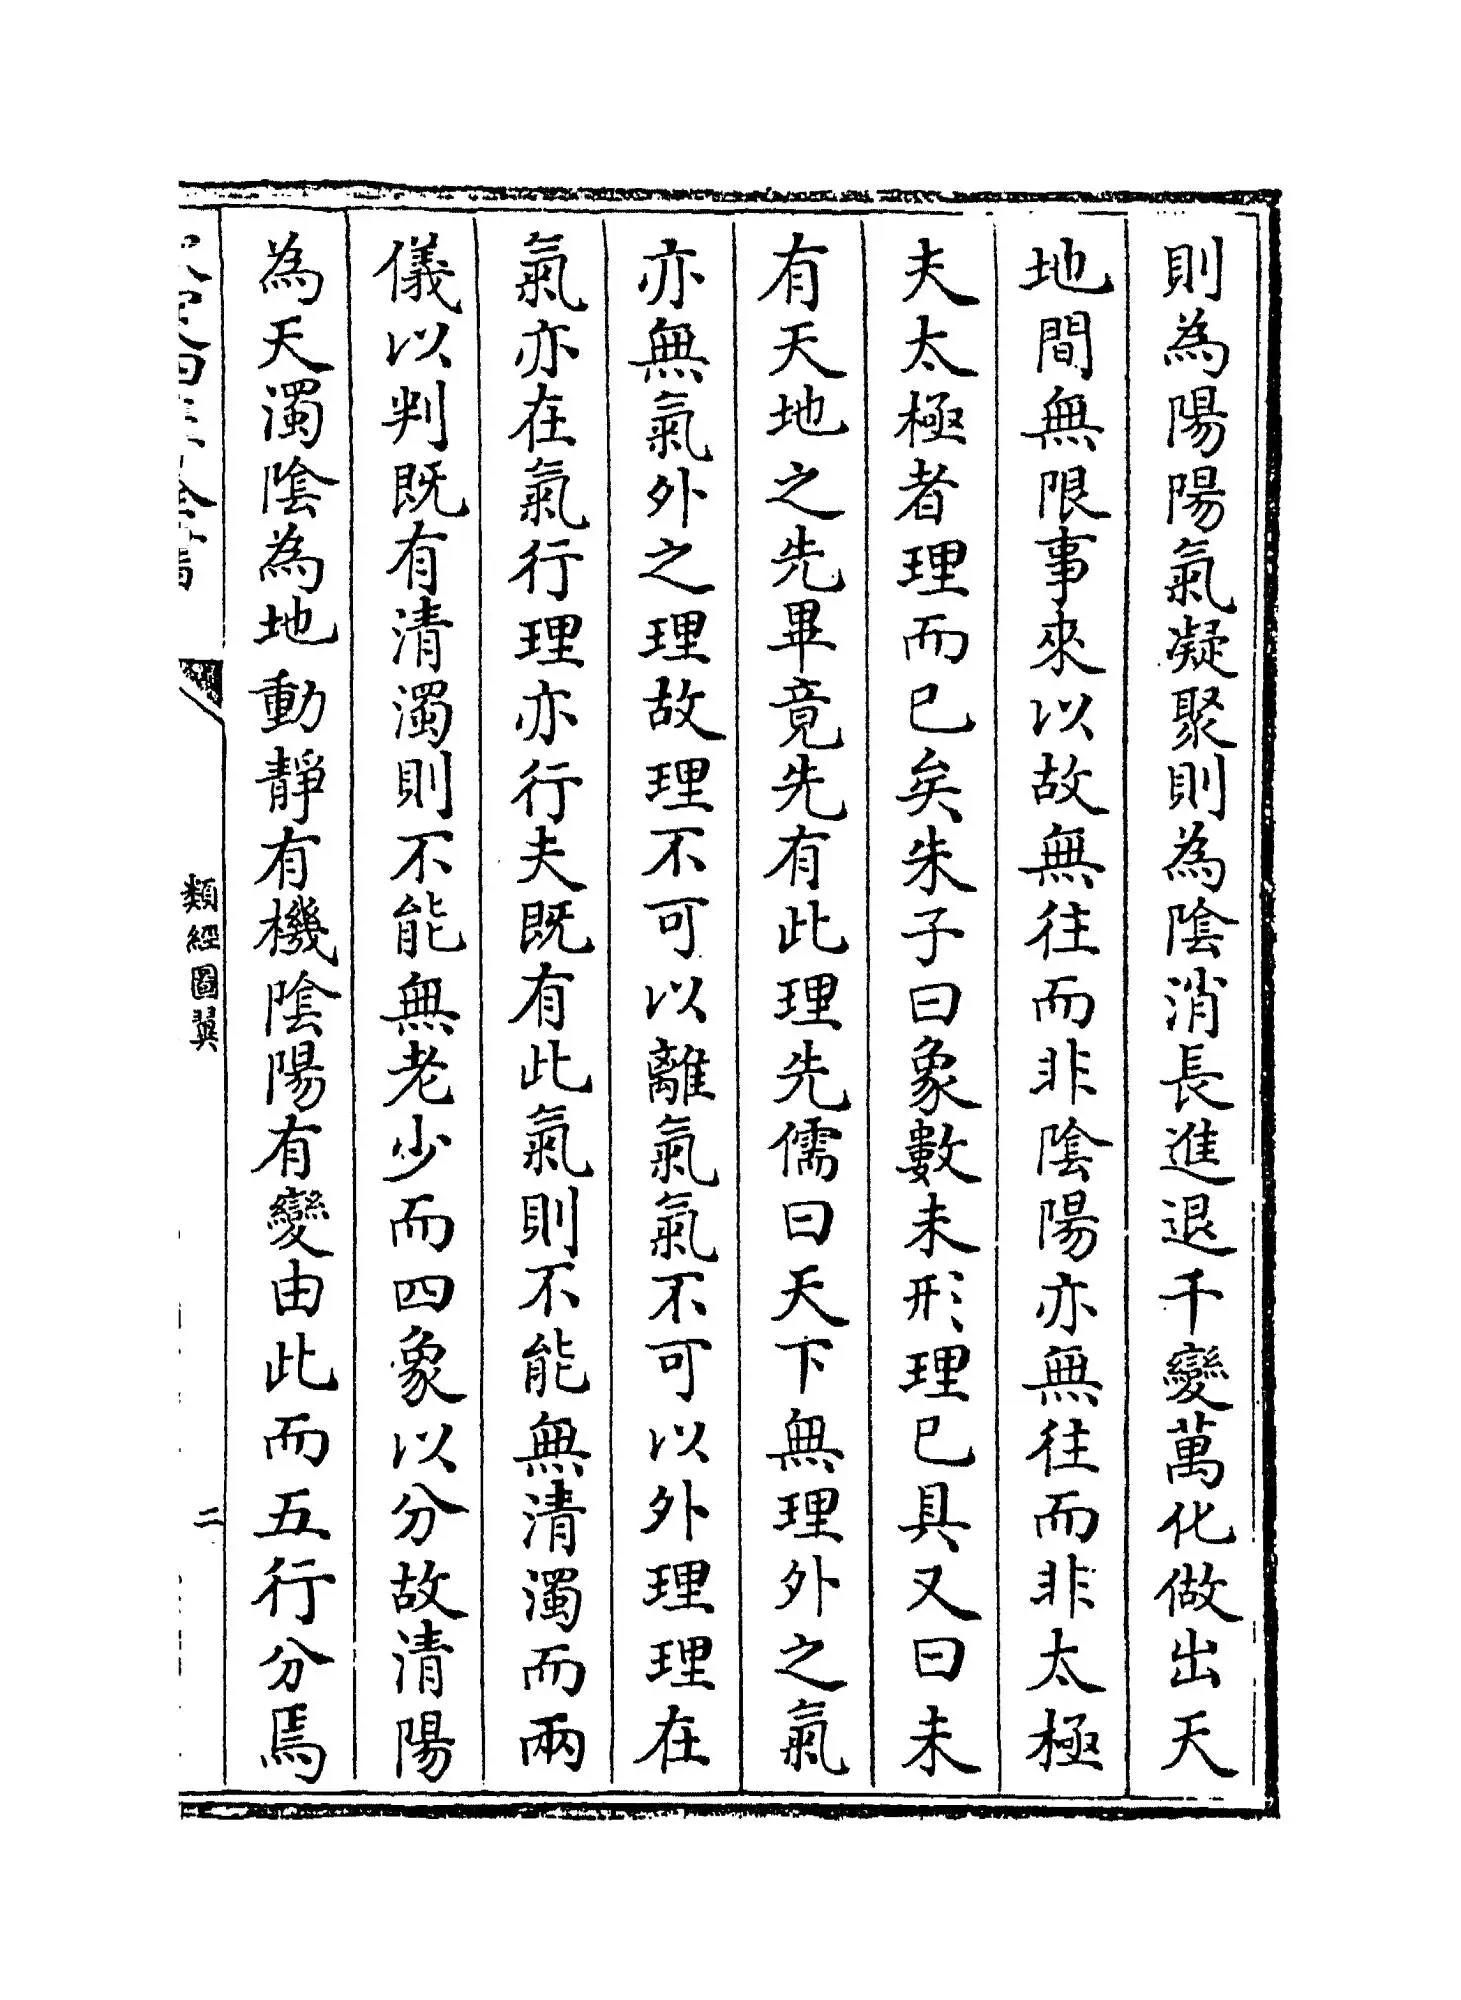 則為陽陽氣凝聚則為陰消長進退千變萬化做出天
地間無限事來以故無往而非陰陽亦無往而非太極
夫太極者理而已矣朱子曰象數未形理已具又曰未
有天地之先畢竟先有此理先儒曰天下無理外之氣
亦無氣外之理故理不可以離氣氣不可以外理理在
氣亦在氣行理亦行夫既有此氣則不能無清濁而兩
儀以判既有清濁則不能無老少而四象以分故清陽
為天濁陰為地動靜有機陰陽有變由此而五行分焉
類經圖翼
二